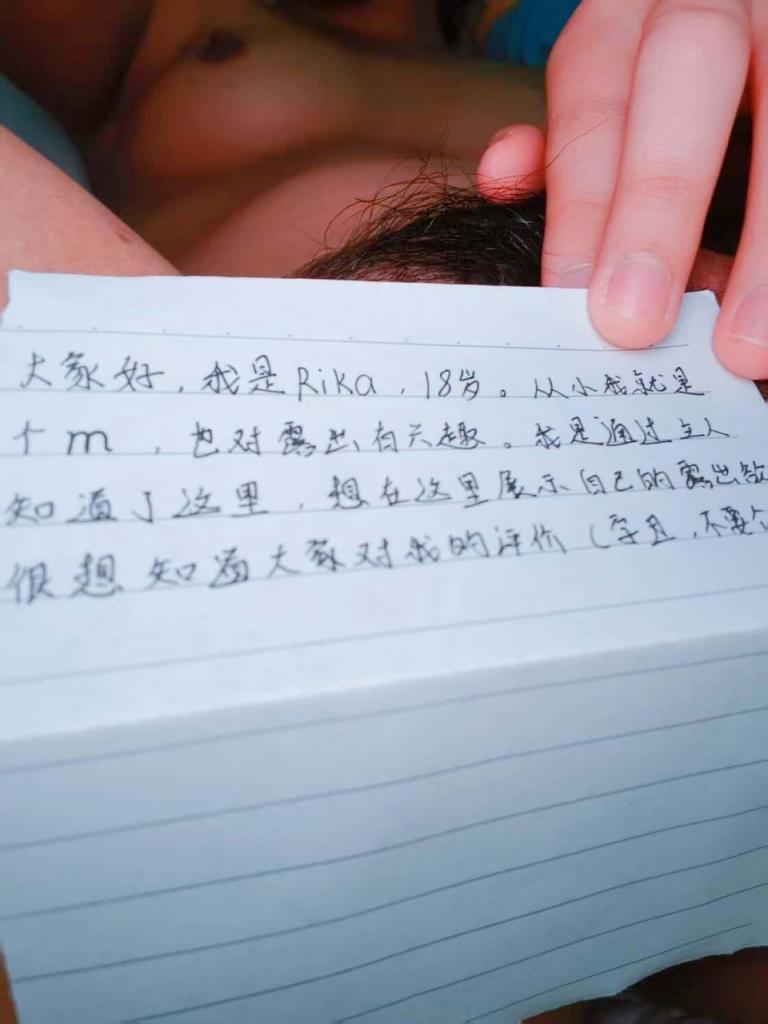 大家好，我是Rika，18岁。从小我就是
个m，也对露出有兴趣。我是通过主人
知道了这里，想在这里展示自己的露出欲
很想知道大家对我的评价（字丑，不要